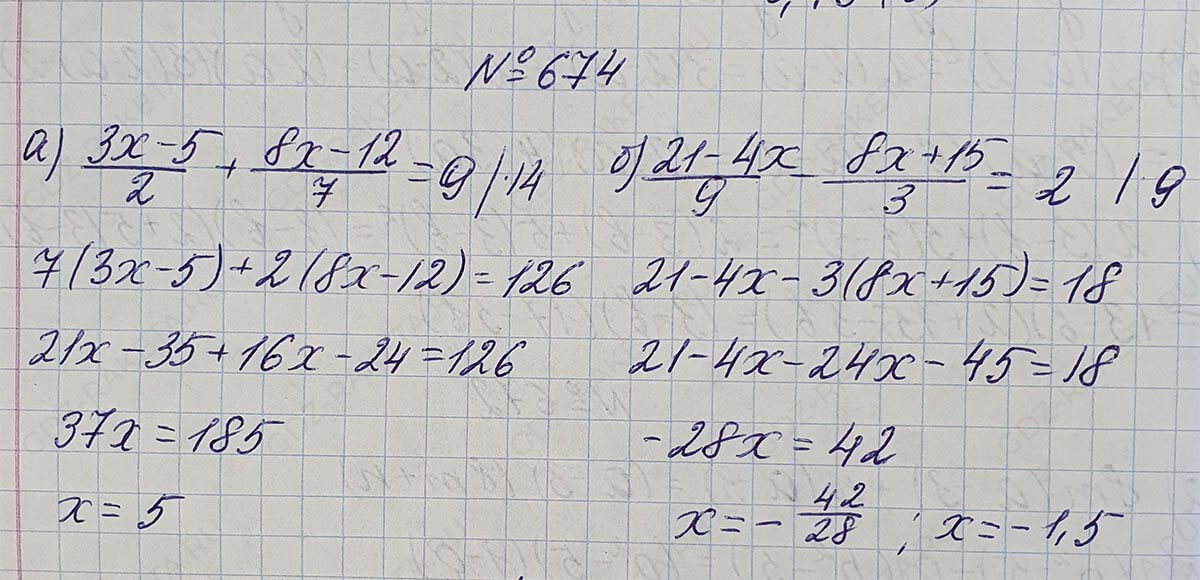 № 674
а) (3x-5)/2 + (8x-12)/7 = 9 |·14
7(3x-5)+2(8x-12)=126
21x-35+16x-24=126
37x=185
x=5
б) (21-4x)/9 - (8x+15)/3 = 2 |·9
21-4x-3(8x+15)=18
21-4x-24x-45=18
-28x=42
x=-42/28; x=-1,5